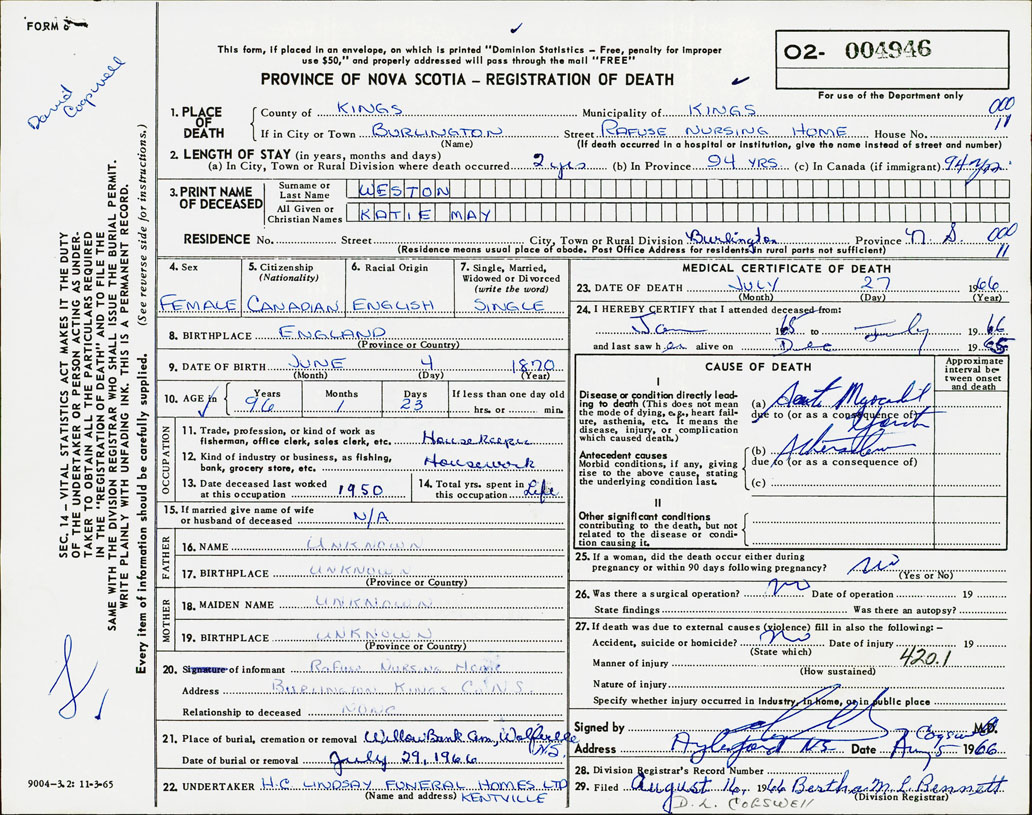 FORM 6
David Cogswell
This form, if placed in an envelope, on which is printed "Dominion Statistics – Free, penalty for improper
use $50," and properly addressed will pass through the mail "FREE"
O2- 004946
For use of the Department only
PROVINCE OF NOVA SCOTIA – REGISTRATION OF DEATH
1. PLACE OF DEATH
County of KINGS Municipality of KINGS 000
If in City or Town BURLINGTON Street RAFUSE NURSING HOME House No. 11
(Name) (If death occurred in a hospital or institution, give the name instead of street and number)
2. LENGTH OF STAY (in years, months and days)
(a) In City, Town or Rural Division where death occurred 2 yrs (b) In Province 94 YRS. (c) In Canada (if immigrant) 94 yrs.
3. PRINT NAME OF DECEASED
Surname or Last Name WESTON
All Given or Christian Names KATIE MAY
RESIDENCE No. Street City, Town or Rural Division Burlington Province N. S. 000
(Residence means usual place of abode. Post Office Address for residents in rural parts not sufficient) 11
4. Sex FEMALE
5. Citizenship (Nationality) CANADIAN
6. Racial Origin ENGLISH
7. Single, Married, Widowed or Divorced (write the word) SINGLE
8. BIRTHPLACE ENGLAND
(Province or Country)
9. DATE OF BIRTH JUNE 4 1870
(Month) (Day) (Year)
10. AGE in Years Months Days If less than one day old
96 1 23 hrs. or min.
OCCUPATION
11. Trade, profession, or kind of work as
fisherman, office clerk, sales clerk, etc. Housekeeper
12. Kind of industry or business, as fishing,
bank, grocery store, etc. Housework
13. Date deceased last worked
at this occupation 1950
14. Total yrs. spent in
this occupation Life
15. If married give name of wife
or husband of deceased N/A
FATHER
16. NAME UNKNOWN
17. BIRTHPLACE UNKNOWN
(Province or Country)
MOTHER
18. MAIDEN NAME UNKNOWN
19. BIRTHPLACE UNKNOWN
(Province or Country)
20. Signature of informant RAFUSE NURSING HOME
Address BURLINGTON KINGS CO. N.S.
Relationship to deceased NONE
21. Place of burial, cremation or removal Willow Bank Cem, Wolfville NS
Date of burial or removal July 29, 1966
22. UNDERTAKER H.C. LINDSAY FUNERAL HOMES LTD
(Name and address) KENTVILLE
MEDICAL CERTIFICATE OF DEATH
23. DATE OF DEATH JULY 27 1966
(Month) (Day) (Year)
24. I HEREBY CERTIFY that I attended deceased from:
Jan 1965 to July 1966
and last saw her alive on Dec 1965
CAUSE OF DEATH
Approximate interval between onset and death
I
Disease or condition directly leading to death (This does not mean the mode of dying, e.g., heart failure, asthenia, etc. It means the disease, injury, or complication which caused death.)
(a)
due to (or as a consequence of)
Antecedent causes
Morbid conditions, if any, giving rise to the above cause, stating the underlying condition last.
(b)
due to (or as a consequence of)
(c)
II
Other significant conditions
contributing to the death, but not related to the disease or condition causing it.
25. If a woman, did the death occur either during
pregnancy or within 90 days following pregnancy? no
(Yes or No)
26. Was there a surgical operation? no Date of operation 19
State findings Was there an autopsy?
27. If death was due to external causes (violence) fill in also the following: –
Accident, suicide or homicide? no Date of injury 19
(State which)
Manner of injury 420.1
(How sustained)
Nature of injury
Specify whether injury occurred in industry, in home, or in public place
Signed by Cogswell M.D.
Address Aylesford NS Date Aug 5 1966
28. Division Registrar's Record Number
29. Filed August 16, 1966 Bertha M. L. Bennett
(Division Registrar)
D. L. COGSWELL
SEC. 14 – VITAL STATISTICS ACT MAKES IT THE DUTY
OF THE UNDERTAKER OR PERSON ACTING AS UNDER-
TAKER TO OBTAIN ALL THE PARTICULARS REQUIRED
IN THE "REGISTRATION OF DEATH" AND TO FILE THE
SAME WITH THE DIVISION REGISTRAR WHO SHALL ISSUE THE BURIAL PERMIT.
WRITE PLAINLY WITH UNFADING INK. THIS IS A PERMANENT RECORD.
Every item of information should be carefully supplied. (See reverse side for instructions.)
9004-3.2: 11-3-65